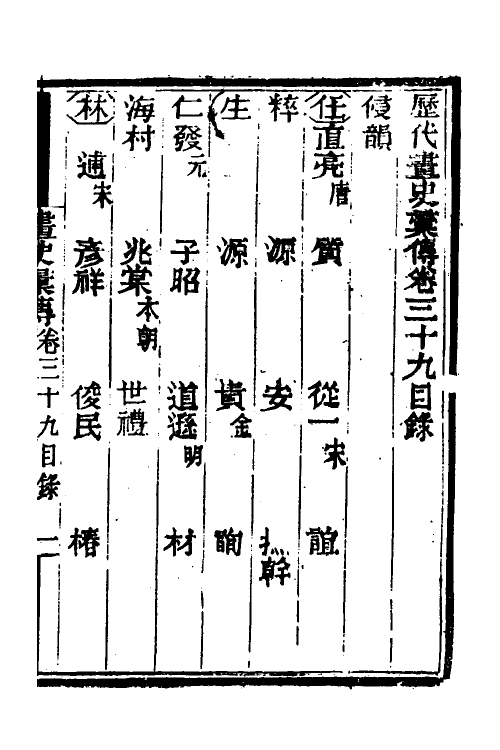 歷代畫史彙傳卷三十九目錄
侵韻
任 直亮唐 質 從一宋 誼
粹 源 安 撫幹
生 源 賁金 詢
仁發元 子昭 道遜明 材
海村 兆棠本朝 世禮
林 逋宋 彥祥 俊民 椿
畫史彙傳卷三十九目錄 一